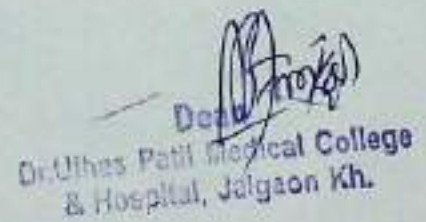 Dean
Dr.Ulhas Patil Medical College
& Hospital, Jalgaon Kh.